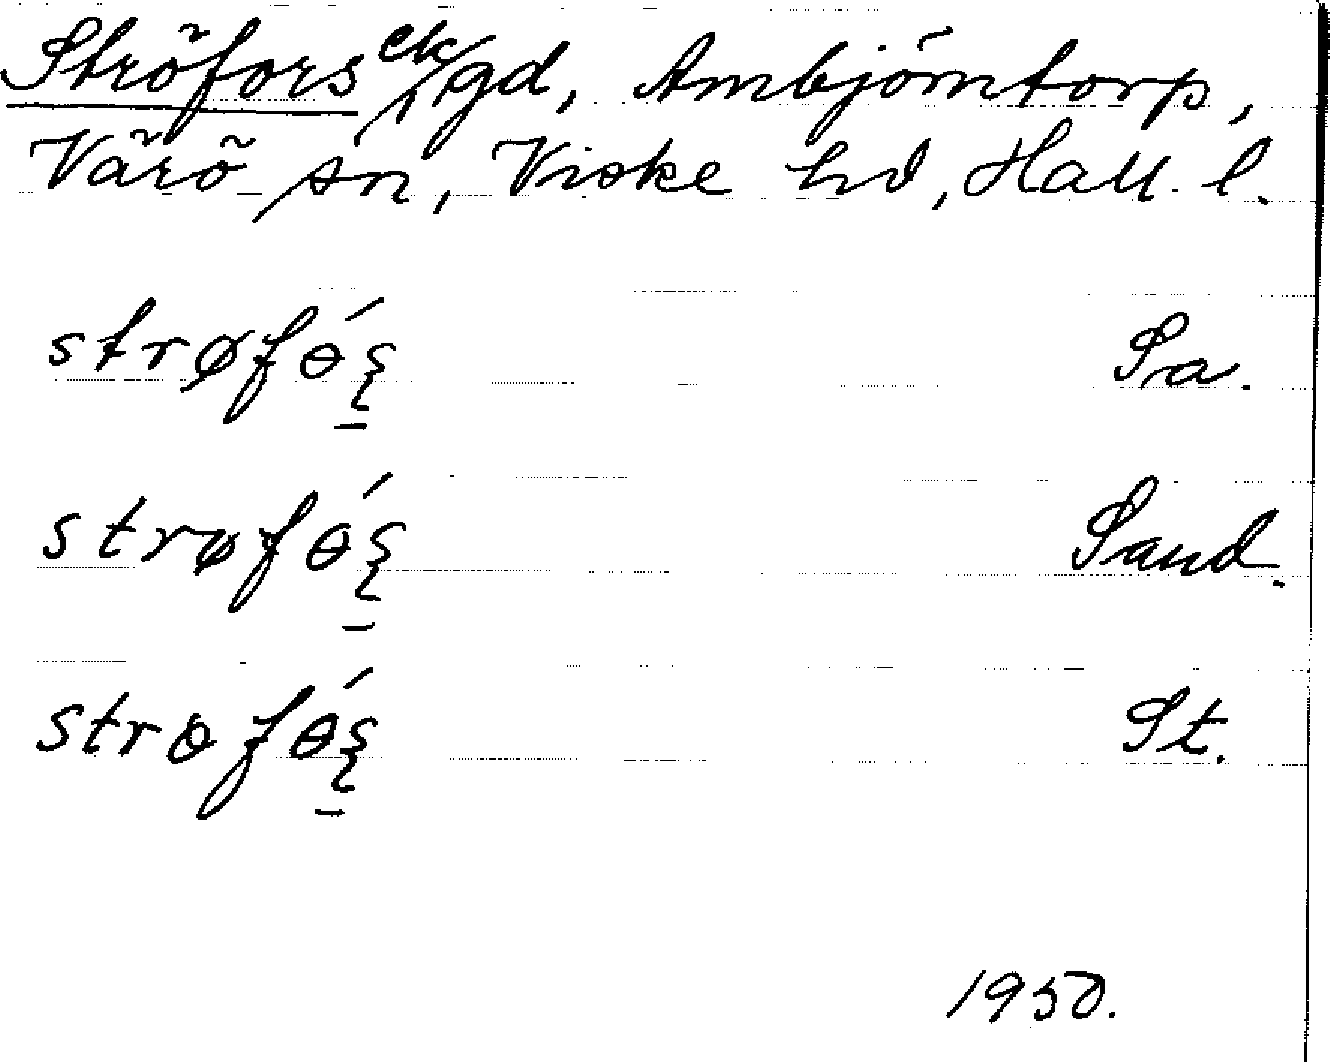 Ströfors ek/gd, Ambjörntorp,
Värö sn, Viske hd, Hall. l.
strøfɵ́ʂ Sa.
strøfɵ́ʂ Sand.
strɵfɵ́ʂ St.
1950.